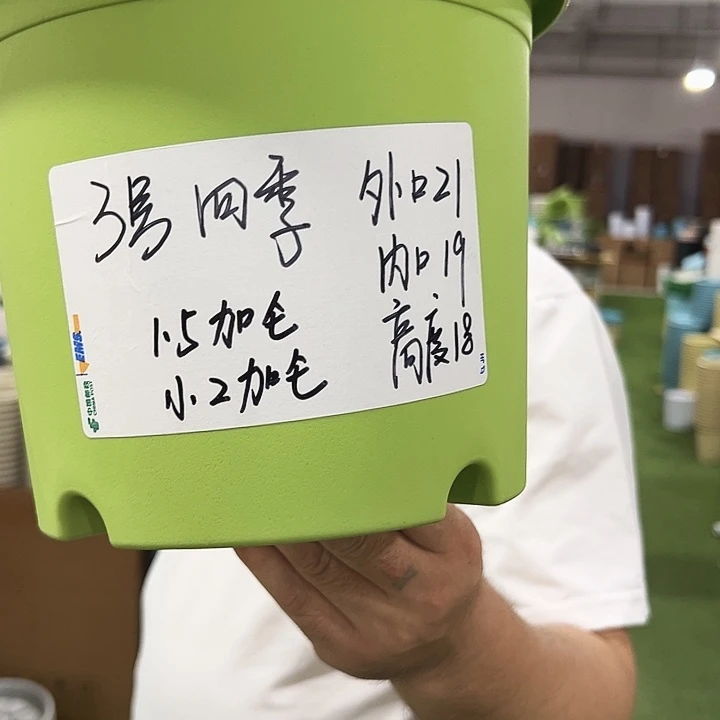 3号 四季
外口21
内口19
高度18
1.5加仑
小2加仑
EMS
中国邮政
CHINA POST